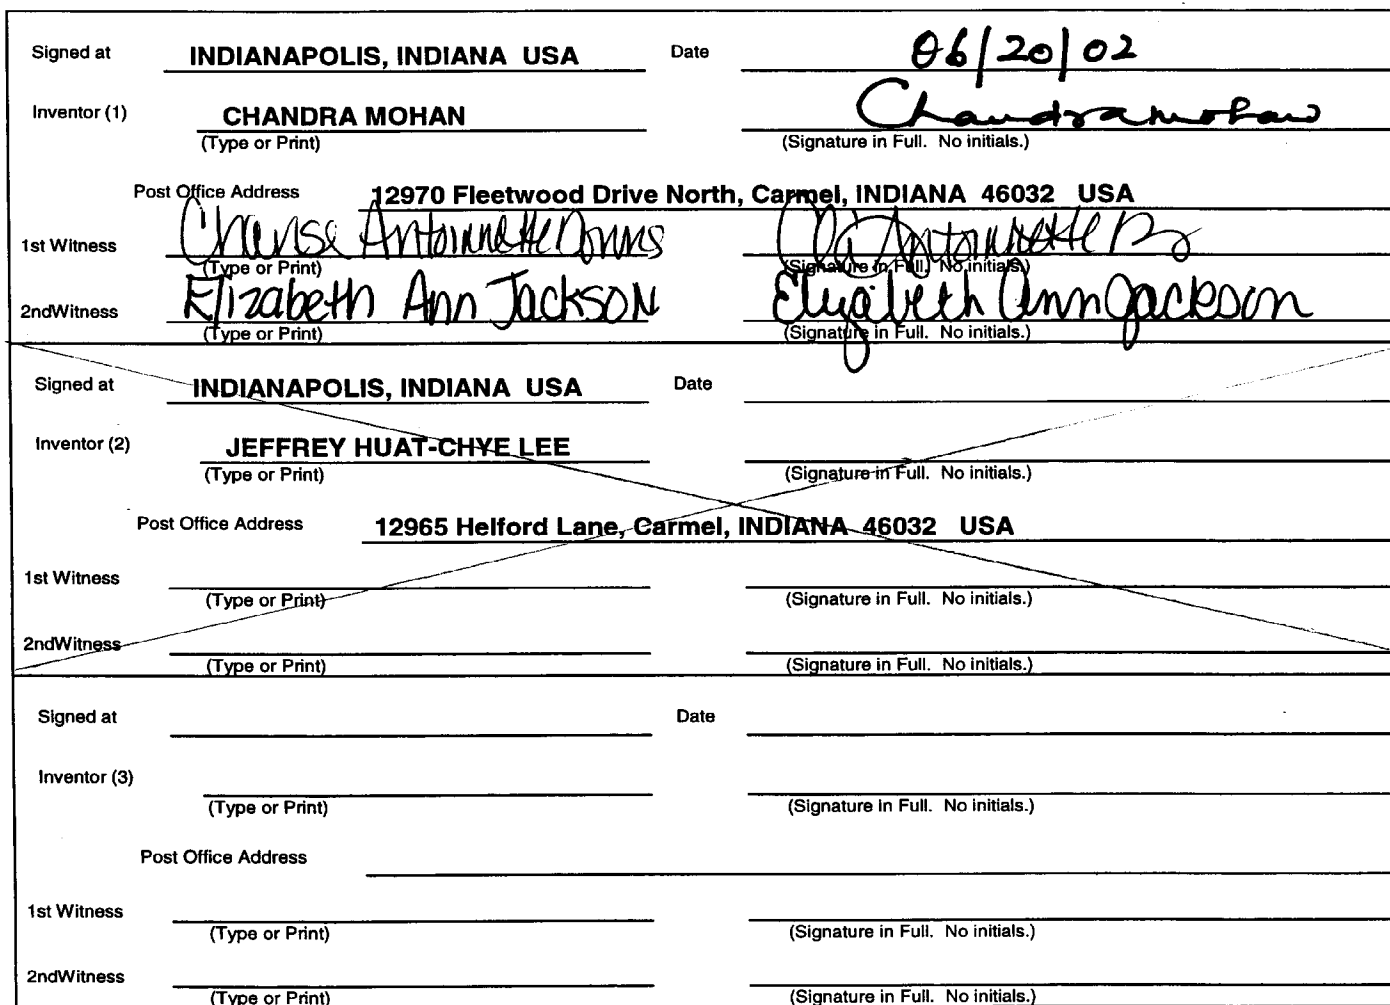 Signed at INDIANAPOLIS, INDIANA USA Date 06/20/02
Inventor (1) CHANDRA MOHAN Chandramohan
(Type or Print) (Signature in Full. No initials.)
Post Office Address 12970 Fleetwood Drive North, Carmel, INDIANA 46032 USA
1st Witness Antoinette Antoinette
(Type or Print) (Signature in Full. No initials.)
2ndWitness Elizabeth Ann Jackson Elizabeth Ann Jackson
(Type or Print) (Signature in Full. No initials.)
Signed at INDIANAPOLIS, INDIANA USA Date
Inventor (2) JEFFREY HUAT-CHYE LEE
(Type or Print) (Signature in Full. No initials.)
Post Office Address 12965 Helford Lane, Carmel, INDIANA 46032 USA
1st Witness
(Type or Print) (Signature in Full. No initials.)
2ndWitness
(Type or Print) (Signature in Full. No initials.)
Signed at Date
Inventor (3)
(Type or Print) (Signature in Full. No initials.)
Post Office Address
1st Witness
(Type or Print) (Signature in Full. No initials.)
2ndWitness
(Type or Print) (Signature in Full. No initials.)